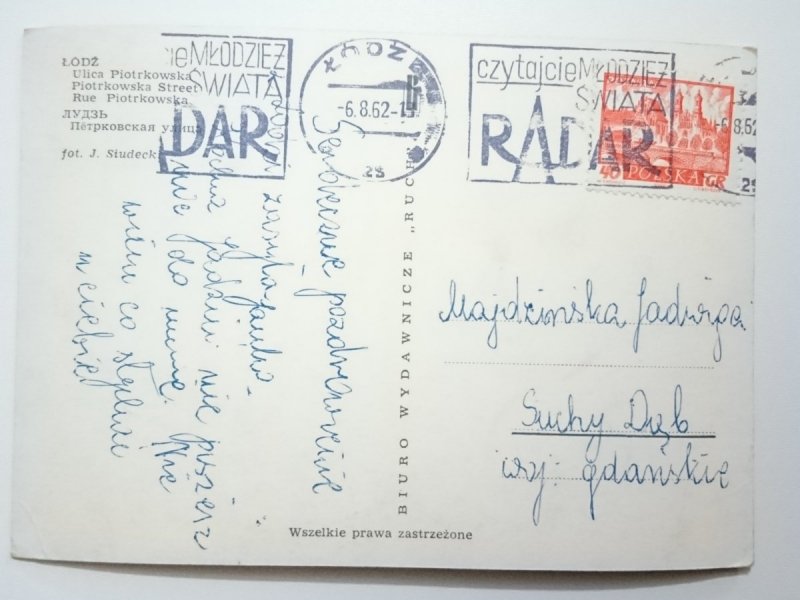 ŁÓDŹ
Ulica Piotrkowska
Piotrkowska Street
Rue Piotrkowska
ЛУДЗЬ
Пётрковская улица
fot. J. Siudeck
cie MŁODZIEŻ
ŚWIATA
DAR
ŁÓDŹ
-6.8.62-1
2s
czytajcie MŁODZIEŻ
ŚWIATA
RADAR
-6.8.62
2s
40 POLSKA GR
Serdeczne pozdrowienia
zasyła
Jadziu nie piszesz
do mnie. Nie
wiem co słychać
u ciebie
BIURO WYDAWNICZE „RUCH"
Majdzińska Jadwiga
Suchy Dąb
woj: gdańskie
Wszelkie prawa zastrzeżone